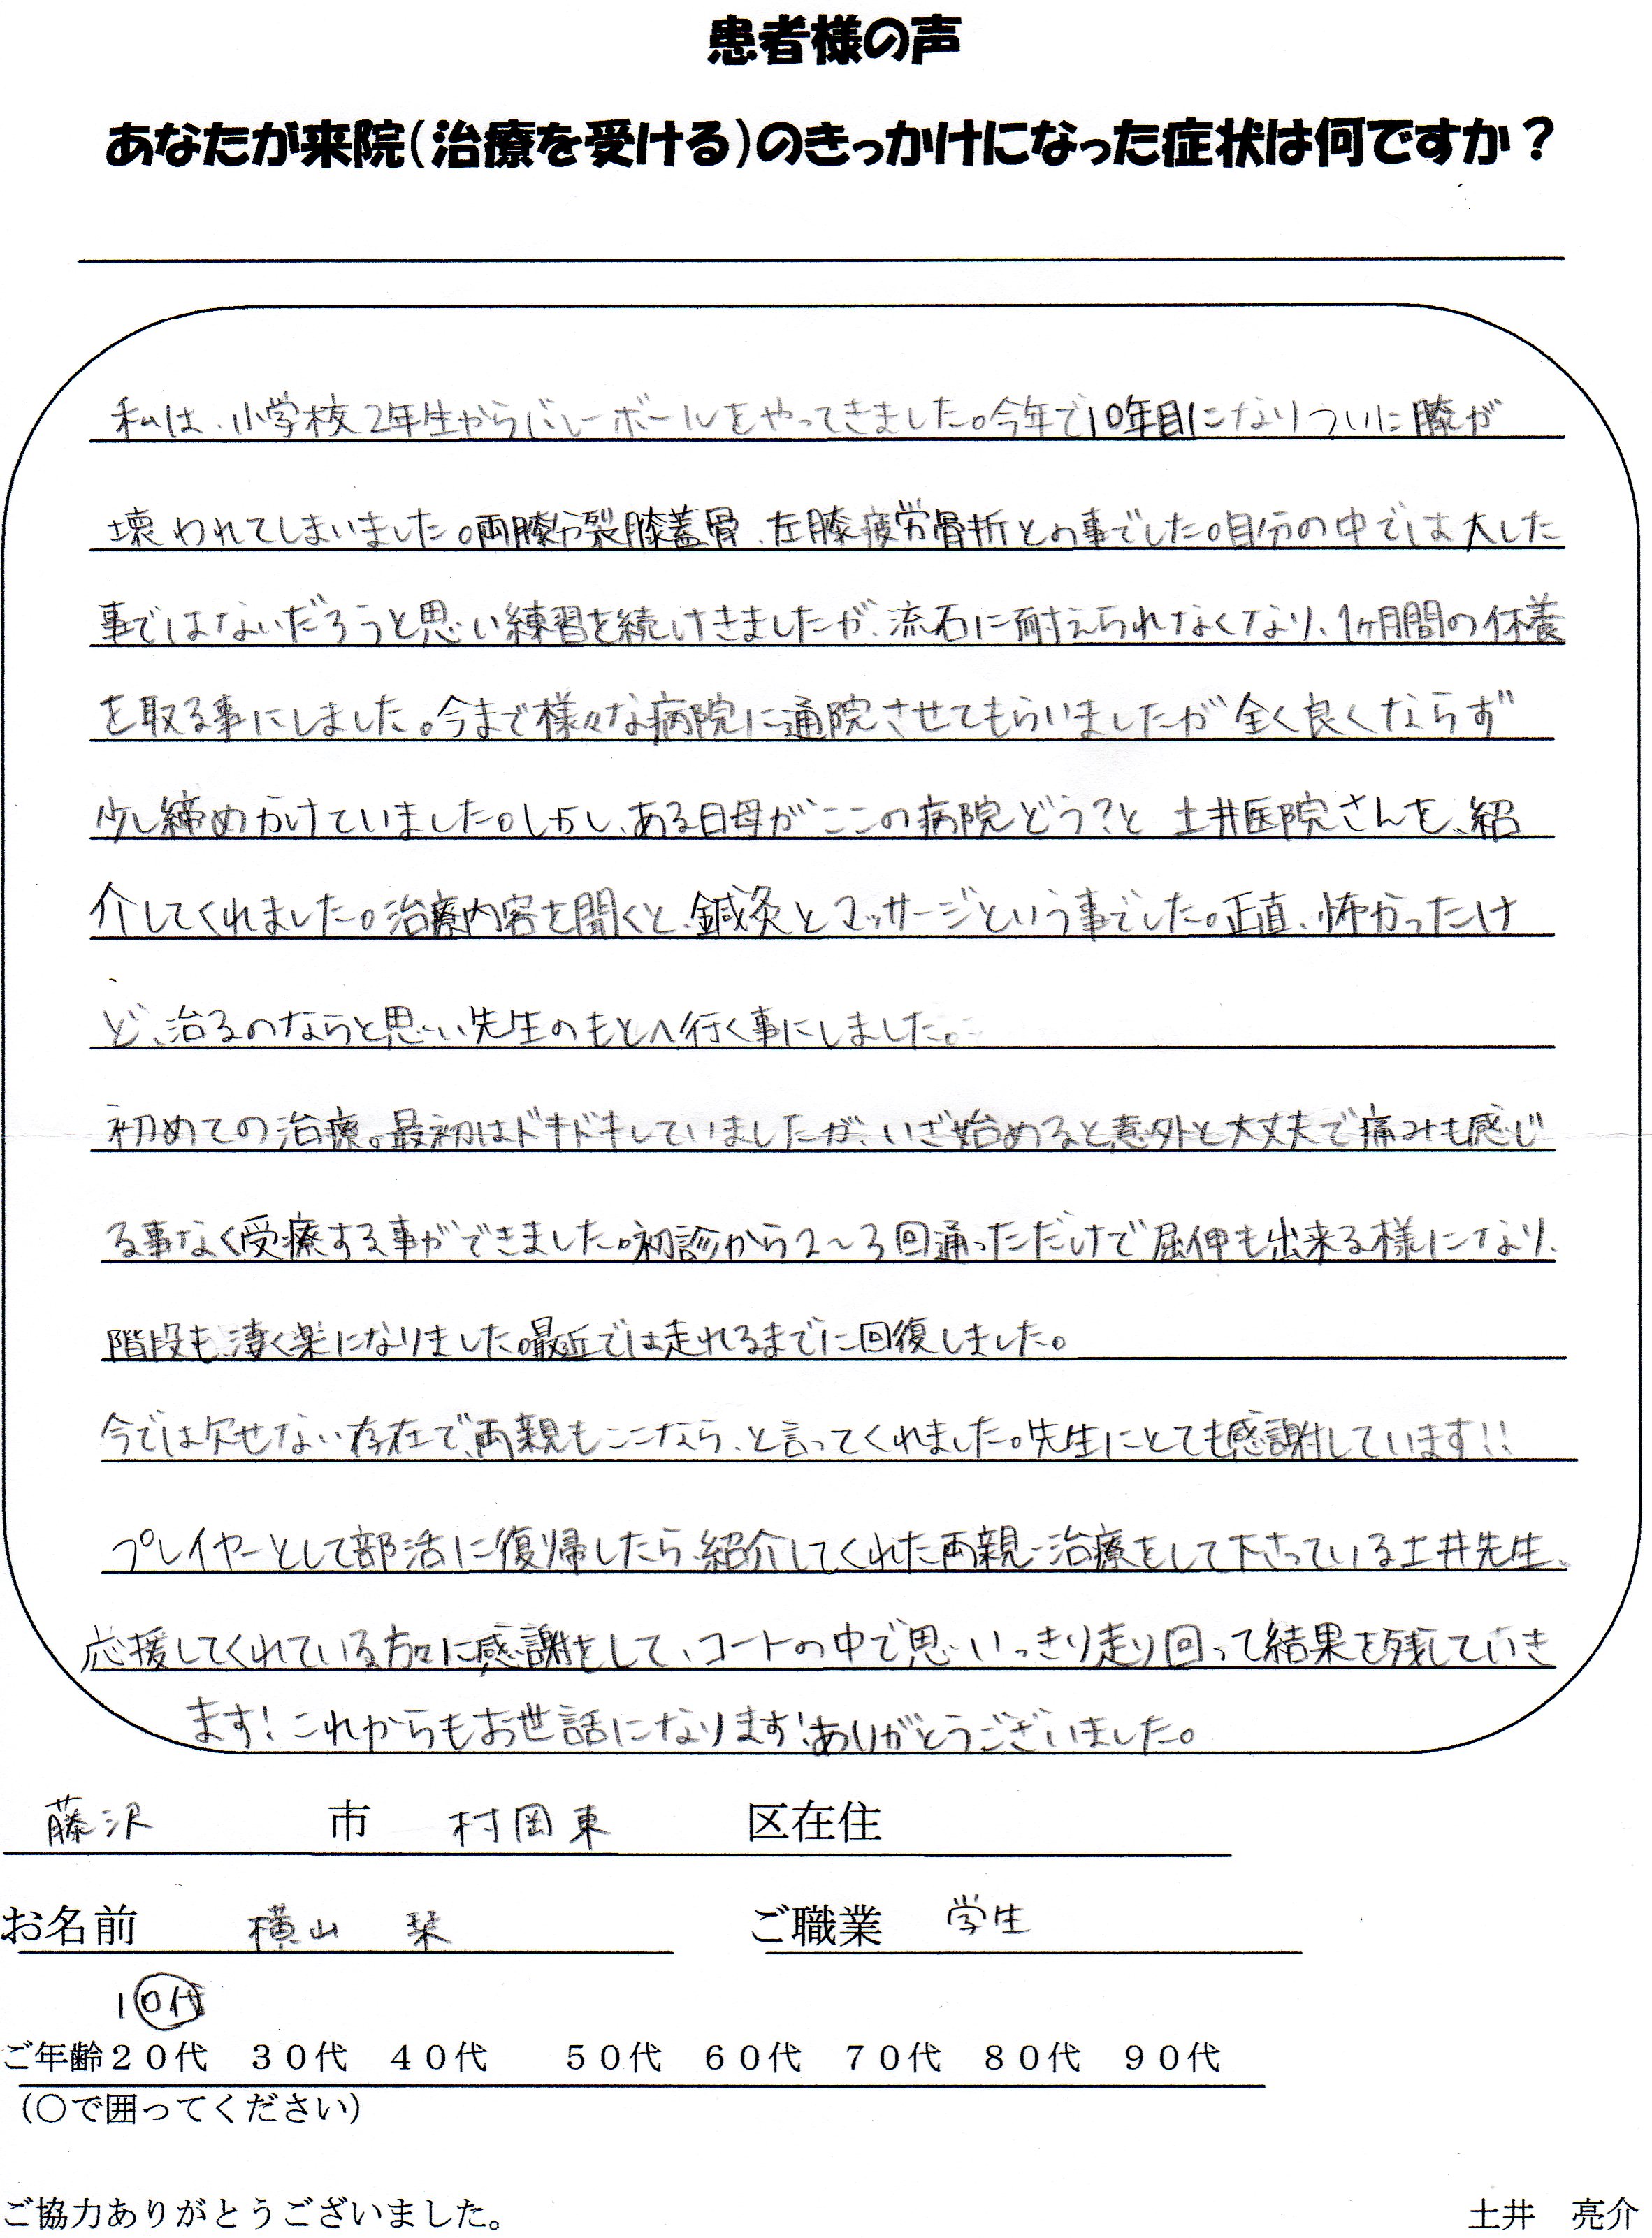 患者様の声
あなたが来院(治療を受ける)のきっかけになった症状は何ですか?
私は、小学校2年生からバレーボールをやってきました。今年で10年目になりついに膝が
壊われてしまいました。両膝分裂膝蓋骨、左膝疲労骨折との事でした。自分の中では大した
事ではないだろうと思い練習を続けきましたが、流石に耐えられなくなり、1ヶ月間の休養
を取る事にしました。今まで様々な病院に通院させてもらいましたが全く良くならず
少し締めかけていました。しかし、ある日母がここの病院どう?と 土井医院さんを、紹
介してくれました。治療内容を聞くと、鍼灸とマッサージという事でした。正直、怖かったけ
ど、治るのならと思い先生のもとへ行く事にしました。
初めての治療。最初はドキドキしていましたが、いざ始めると意外と大丈夫で痛みも感じ
る事なく受療する事ができました。初診から2〜3回通っただけで屈伸も出来る様になり、
階段も凄く楽になりました。最近では走れるまでに回復しました。
今では欠せない存在で、両親もここなら、と言ってくれました。先生にとても感謝しています!!
プレイヤーとして部活に復帰したら、紹介してくれた両親・治療をして下さっている土井先生、
応援してくれている方々に感謝をして、コートの中で思いっきり走り回って結果を残していき
ます!これからもお世話になります!ありがとうございました。
藤沢 市 村岡東 区在住
お名前 横山 栞 ご職業 学生
10代
ご年齢20代 30代 40代 50代 60代 70代 80代 90代
(○で囲ってください)
ご協力ありがとうございました。 土井 亮介